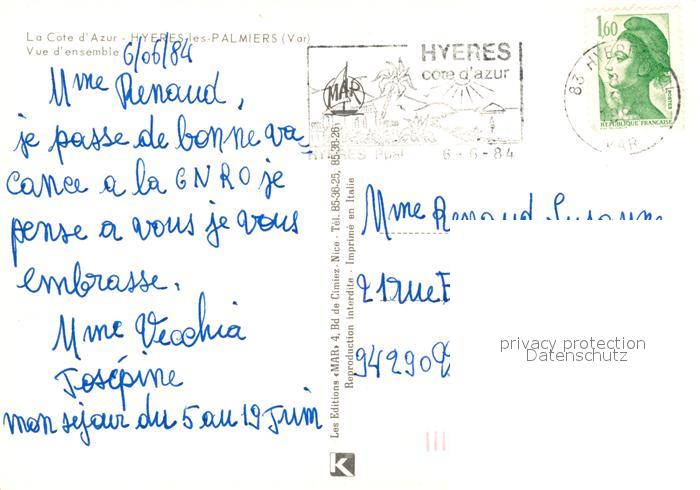 La Côte d'Azur - HYERES-les-PALMIERS (Var)
Vue d'ensemble
6/06/84
Mme Renaud,
je passe de bonne va
cance a la GNRO je
pense a vous je vous
embrasse.
Mme Vecchia
Josépine
mon séjour du 5 au 19 Juin
HYERES
cote d'azur
MAR
HYERES Ppal 6-6-84
83 HYERES
VAR
1,60
POSTES
REPUBLIQUE FRANCAISE
Les Editions «MAR» 4, Bd de Cimiez - Nice - Tél. 85-36-25, 85-36-26
Reproduction interdite - Imprimé en Italie
Mme Renaud Susanne
21 rue
94290
privacy protection
Datenschutz
K